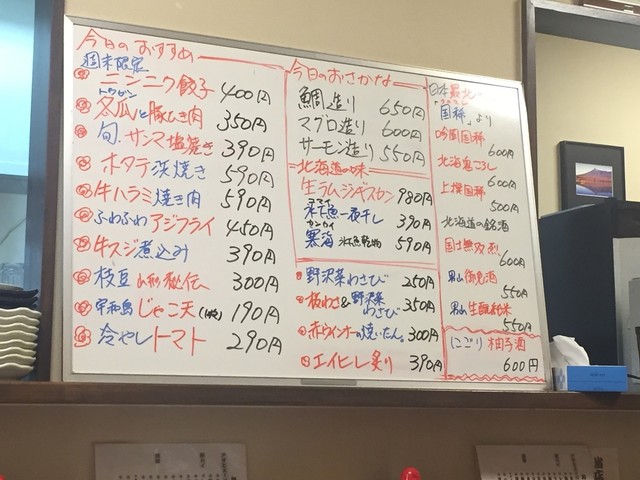 今日のおすすめ
週末限定
ニンニク餃子 400円
トウガン
冬瓜と豚ひき肉 350円
旬、サンマ塩焼き 390円
ホタテ浜焼き 590円
牛ハラミ焼き肉 590円
ふわふわアジフライ 450円
牛スジ煮込み 390円
枝豆 山形秘伝 300円
宇和島じゃこ天(1枚) 190円
冷やしトマト 290円
今日のおさかな
鯛造り 650円
マグロ造り 600円
サーモン造り 550円
北海道の味
生ラムジンギスカン 980円
一夜干し 390円
カンカイ
寒海 590円
野沢菜わさび 250円
板わさ&野沢菜わさび 350円
赤ウインナーの焼いたん。 300円
エイヒレ炙り 390円
日本最北
「国稀」より
吟風国稀
600円
北海鬼ころし
600円
上撰国稀
500円
北海道の銘酒
国士無双 烈
600円
男山御免酒
550円
男山生酛純米
550円
にごり柚子酒
600円